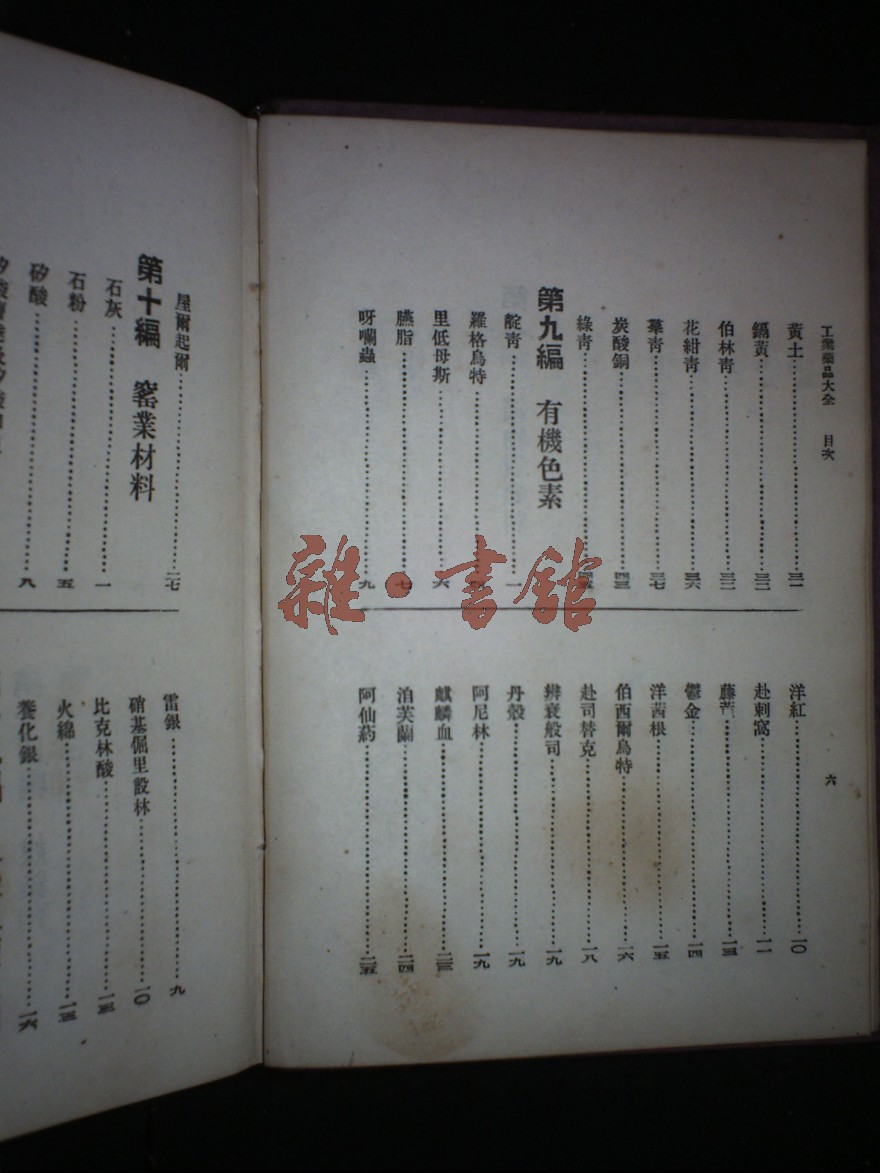 工業藥品大全 目次
六
黃土 三一
鎘黃 三二
伯林青 三二
花紺青 三六
羣青 三七
炭酸銅 四三
綠青
第九編 有機色素
靛青 一
羅格烏特
里低母斯 六
臙脂 七
呀囒蟲 九
洋紅 一〇
赴剌窩 一一
藤黃 一三
鬱金 一四
洋茜根 一五
伯西爾烏特 一六
赴司替克 一八
辨衰般司 一九
丹殼 一九
阿尼林 一九
麒麟血 二三
洎芙蘭 二四
阿仙葯 二五
屋爾起爾 二七
第十編 窰業材料
石灰 一
石粉 五
矽酸 八
雷銀 九
硝基偔里設林 一〇
比克林酸 一三
火綿 一五
養化銀 一六
雜·書館